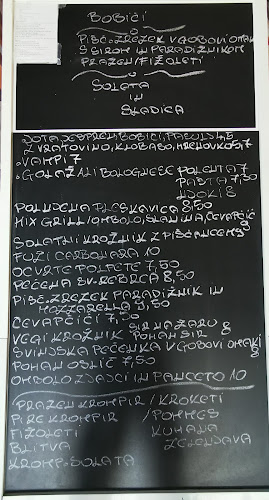 BOBIČI
PIŠČ. ZREZEK V GOBOVI OMAKI
S SIROM IN PARADIŽNIKOM
PRAŽENI FIŽOLETI
SOLATA
IN
SLADICA
JOTA, JEŠPREN, BOBIČI, PAŠULJ 4,5
Z VRATOVINO, KLOBASO, HRENOVKO 5,7
• VAMPI 7
• GOLAŽ ALI BOLOGNESE POLENTA 7
PASTA 7,50
NJOKI 8
POLNJENA PLESKAVICA 8,50
MIX GRILL/OMBOLO, SLANINA, ČEVAPČIČ 9
SOLATNI KROŽNIK Z PIŠČANCEM 8
FUŽI CARBONARA 10
OCVRTE POLPETE 7,50
PEČENA SV. REBRCA 8,50
PIŠČ. ZREZEK PARADIŽNIK IN
MOZZARELLA 9,50
ČEVAPČIČI 7,50
VEGI KROŽNIK SIR NA ŽARU 8
POHAN SIR
SVINJSKA PEČENKA V GOBOVI OMAKI 8
POHAN OSLIČ 7,50
OMBOLO ZJAJCI IN PANCETO 10
PRAŽEN KROMPIR / KROKETI
PIRE KROMPIR / POMMES
FIŽOLETI KUHANA
BLITVA ZELENJAVA
KROMP. SOLATA